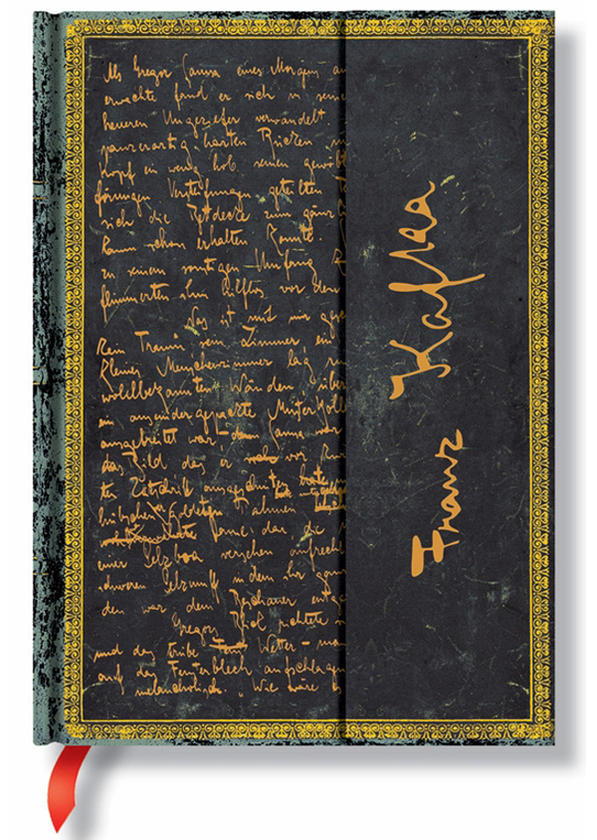 Als Gregor Samsa eines Morgens au
erwachte fand er sich in seine
heueren Ungeziefer verwandelt
panzerartig harten Rücken
Kopf ein wenig hob seinen gewöl
förmigen Versteifungen geteilten
sich die Bettdecke zum gänzl
kaum schon erhalten konnte.
zu seinem sonstigen Umfang
flimmerten ihm hilflos vor den
Was ist mit mir gesc
Kein Traum, sein Zimmer, ein
kleines Menschenzimmer lag ru
wohlbekannten Wänden. über
auseinander gepackte Musterkolle
ausgebreitet war - Samsa war
das Bild das er vor kur
ten Zeitschrift ausgeschnitten
hübschen vergoldeten Rahmen
Dame, die
einer Pelzboa versehen aufrecht
schweren Pelzmuff in dem ihr ganz
den war dem Beschauer entge
Gregors Blick richtete
und das trübe Wetter - man
auf das Fensterblech aufschlagen
melancholisch. „Wie wäre es
Franz Kafka